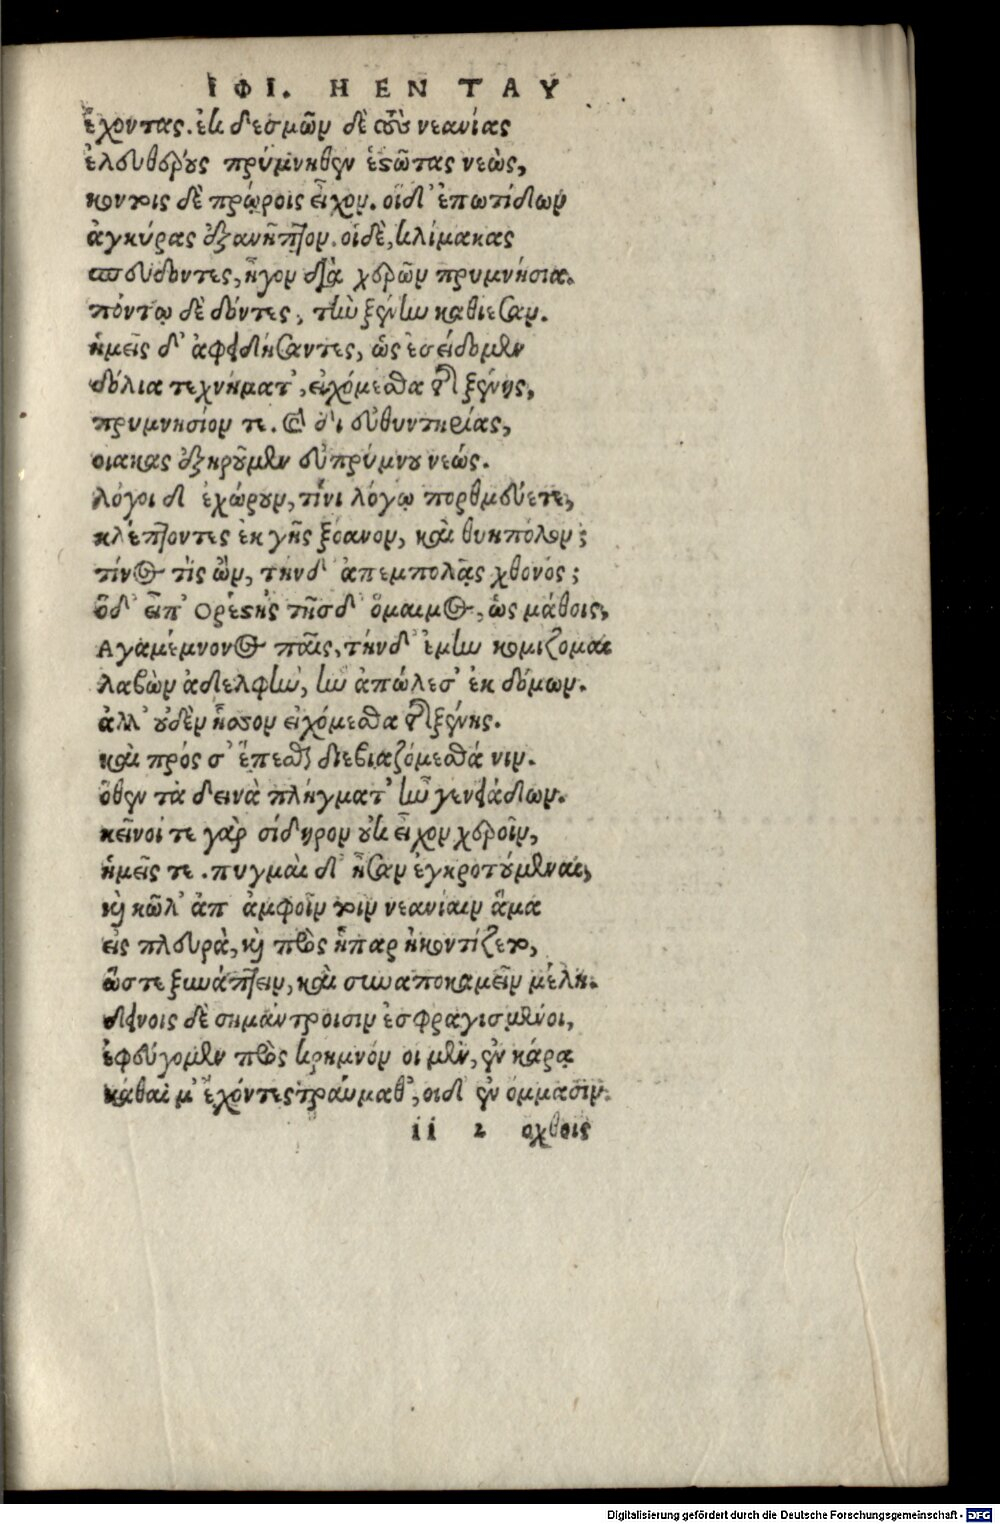 ΙΦΙ. Η ΕΝ ΤΑΥ
ἔχοντας. ἐκ δεσμῶν δὲ τοὺς νεανίας
ἐλευθέρους πρύμνηθεν ἑστῶτας νεὼς,
κοντοῖς δὲ πρῴροις εἶχον. οἱ δ' ἐπωτίδων
ἀγκύρας ἐξανῆπτον. οἱ δὲ, κλίμακας
σπεύδοντες, ἦγον διὰ χερῶν πρυμνήσια.
πόντῳ δὲ δόντες, τὴν ξένην καθίεσαν.
ἡμεῖς δ' ἀφειδήσαντες, ὡς ἐσείδομεν
δόλια τεχνήματ', εἰχόμεσθα τῆς ξένης,
πρυμνησίον τε. καὶ δι εὐθυντηρίας,
οιακας ἐξῃροῦμεν εὐπρύμνου νεώς.
λόγοι δ' ἐχώρουν, τίνι λόγῳ πορθμεύετε,
κλέπτοντες ἐκ γῆς ξόανον, καὶ θυηπόλον;
τίνος τίς ὢν, τήνδ' ἀπεμπολᾷς χθονός;
ὃδ' εἶπ' Ορέστης τῆσδ' ὅμαιμος, ὡς μάθοις,
Αγαμέμνονος παῖς, τήνδ' ἐμὴν κομίζομαι
λαβὼν ἀδελφὴν, ἣν ἀπώλεσ' ἐκ δόμων.
ἀλλ' οὐδὲν ἧσσον εἰχόμεσθα τῆς ξένης.
καὶ πρός σ' ἕπεσθαι διεβιαζόμεσθά νιν.
ὅθεν τὰ δεινὰ πλήγματ' ἦν γενειάδων.
κεῖνοί τε γὰρ σίδηρον οὐκ εἶχον χεροῖν,
ἡμεῖς τε. πυγμαὶ δ' ἦσαν ἐγκροτούμεναι,
καὶ κῶλ' ἀπ ἀμφοῖν τοῖν νεανίαιν ἅμα
εἰς πλευρὰ, καὶ πρὸς ἧπαρ ἠκοντίζετο,
ὥστε ξυνάπτειν, καὶ συναποκαμεῖν μέλη.
δεινοῖς δὲ σημάντροισιν ἐσφραγισμένοι,
ἐφεύγομεν πρὸς κρημνόν οἱ μὲν, ἐν κάρᾳ
κάθαιμ' ἔχόντες τραύμαθ', οἱ δ' ἐν ὄμμασιν.
ii 2 οχθοις
Digitalisierung gefördert durch die Deutsche Forschungsgemeinschaft - DFG